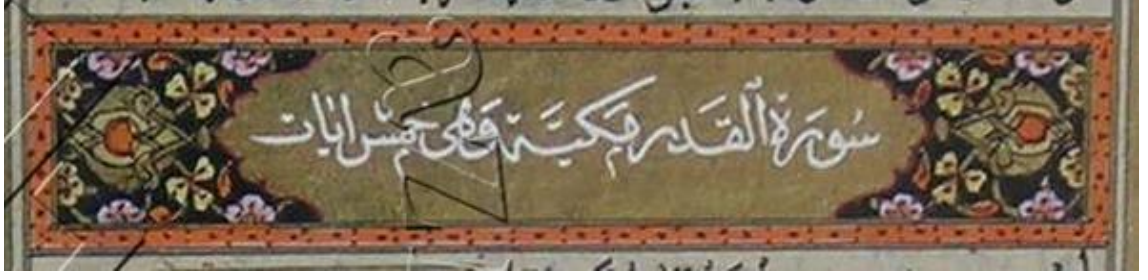 سُورَةُ ٱلقَدر مَكيَّة وَهي خَمسُ ايَات